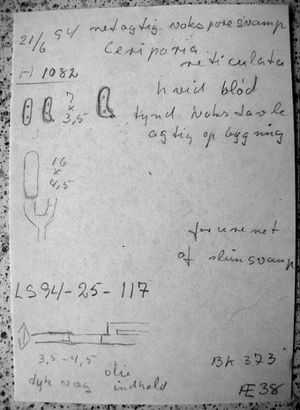 21/6 94 netagtig voksporesvamp
Ceriporia
reticulata
H 1082
hvid blød
7 x 3,5
tynd vokstavle
agtig opbygning
16 x 4,5
forurenet
af slimsvamp
LS94-25-117
3,5-4,5 olie
dyk væg indhold
BK 373
Æ 38